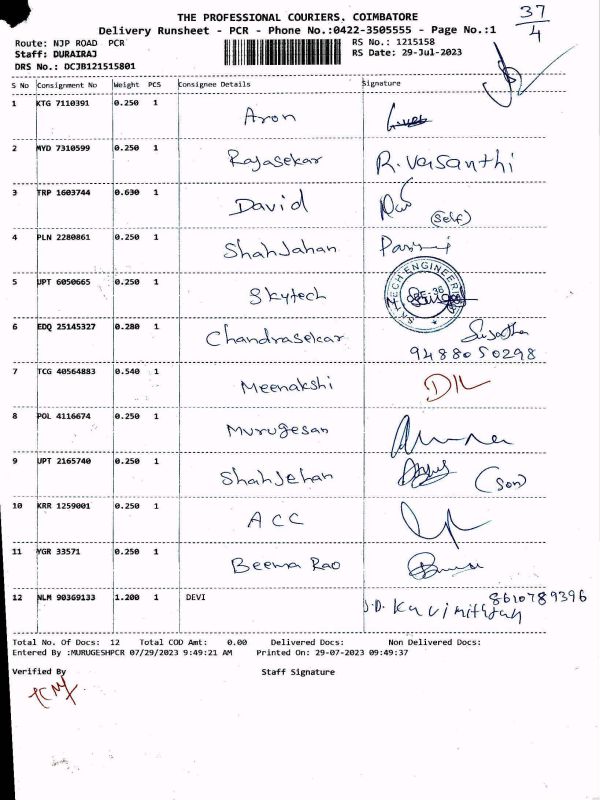 THE PROFESSIONAL COURIERS. COIMBATORE
37/4
Delivery Runsheet - PCR - Phone No.:0422-3505555 - Page No.:1
Route: NJP ROAD PCR
RS No.: 1215158
Staff: DURAIRAJ
RS Date: 29-Jul-2023
DRS No.: DCJB121515801
S No Consignment No Weight PCS Consignee Details Signature
1 KTG 7110391 0.250 1 Aron
2 MYD 7310599 0.250 1 Rajasekar R. Vasanthi
3 TRP 1603744 0.630 1 David (Self)
4 PLN 2280861 0.250 1 ShahJahan
5 UPT 6050665 0.250 1 Skytech
6 EDQ 25145327 0.280 1 Chandrasekar
9488050298
7 TCG 40564883 0.540 1 Meenakshi
8 POL 4116674 0.250 1 Murugesan
9 UPT 2165740 0.250 1 ShahJehan (Son)
10 KRR 1259001 0.250 1 ACC
11 YGR 33571 0.250 1 Beema Rao
12 NLM 90369133 1.200 1 DEVI 8610789396
Total No. Of Docs: 12 Total COD Amt: 0.00 Delivered Docs: Non Delivered Docs:
Entered By :MURUGESHPCR 07/29/2023 9:49:21 AM Printed On: 29-07-2023 09:49:37
Verified By Staff Signature